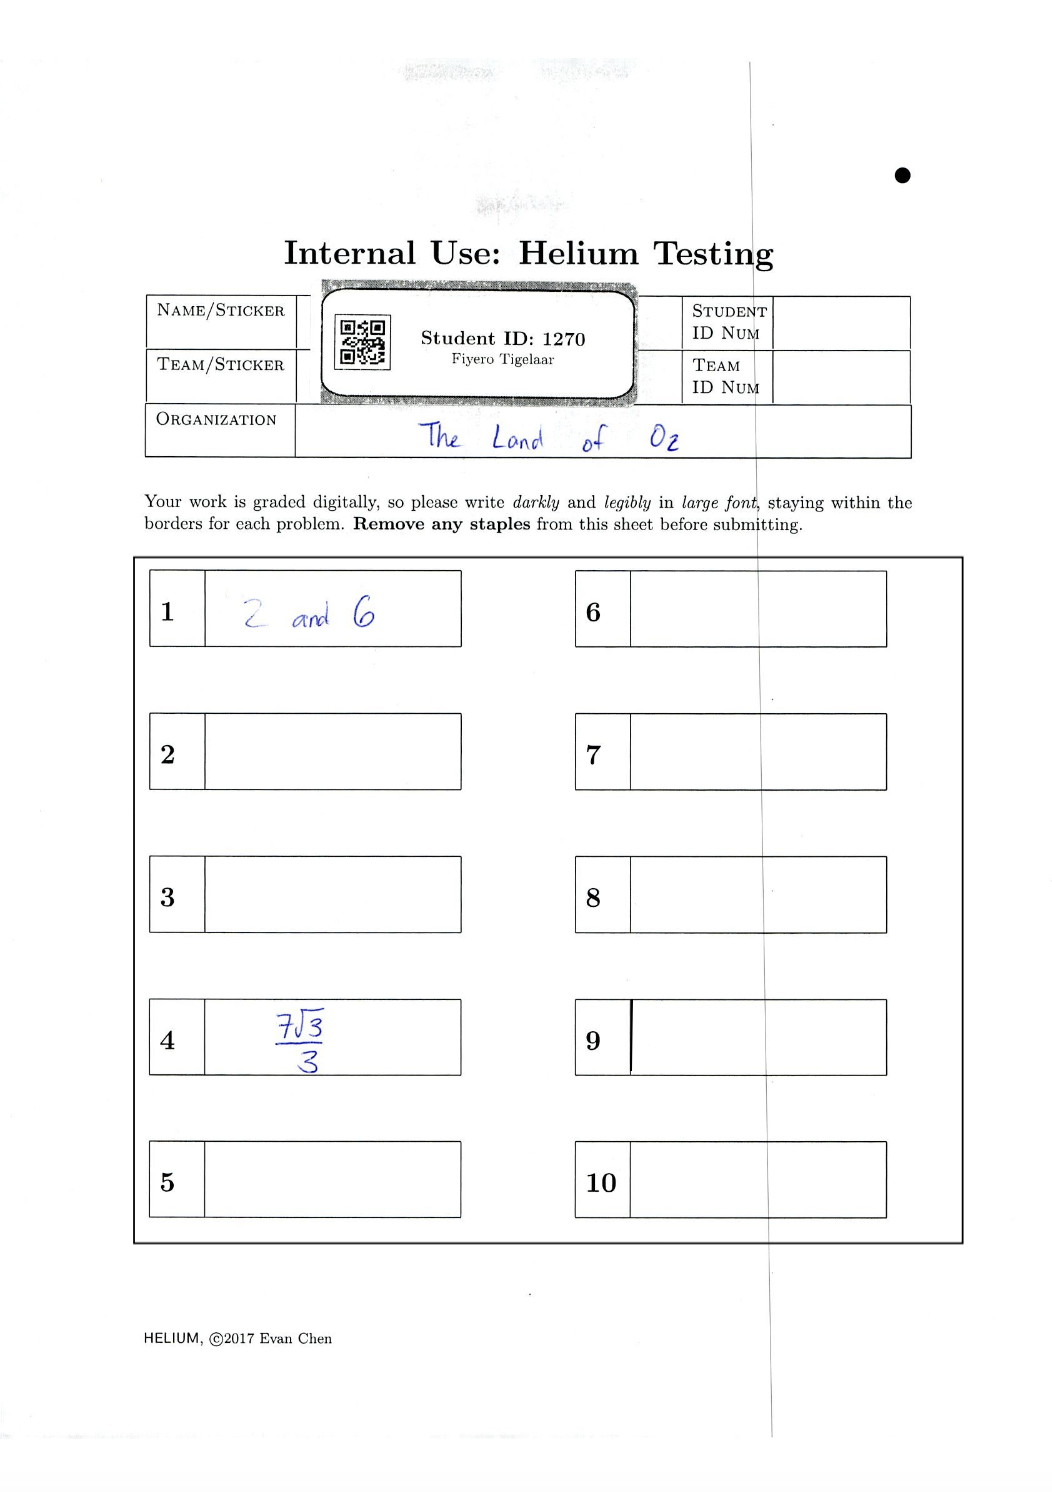 Internal Use: Helium Testing
NAME/STICKER
Student ID: 1270
Fiyero Tigelaar
STUDENT
ID NUM
TEAM/STICKER
TEAM
ID NUM
ORGANIZATION
The Land of Oz
Your work is graded digitally, so please write darkly and legibly in large font, staying within the
borders for each problem. Remove any staples from this sheet before submitting.
1 2 and 6
6
2
7
3
8
4 7√3/3
9
5
10
HELIUM, ©2017 Evan Chen